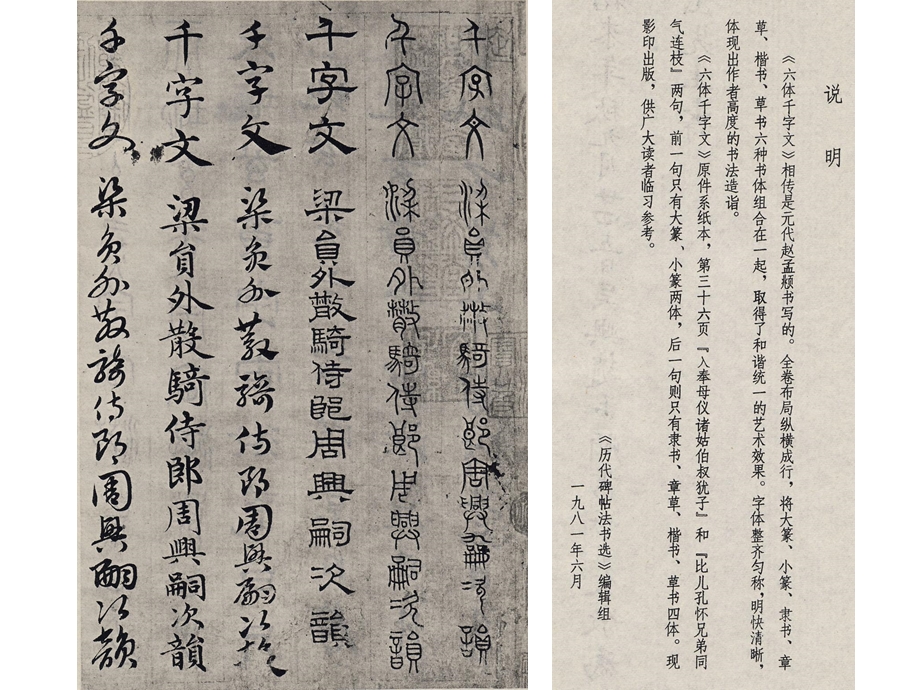 说明
《六体千字文》相传是元代赵孟頫书写的。全卷布局纵横成行，将大篆、小篆、隶书、章
草、楷书、草书六种书体组合在一起，取得了和谐统一的艺术效果。字体整齐匀称，明快清晰，
体现出作者高度的书法造诣。
《六体千字文》原件系纸本，第三十六页『入奉母仪诸姑伯叔犹子』和『比儿孔怀兄弟同
气连枝』两句，前一句只有大篆、小篆两体，后一句则只有隶书、章草、楷书、草书四体。现
影印出版，供广大读者临习参考。
《历代碑帖法书选》编辑组
一九八一年六月
千字文 梁員外散騎侍郎周興嗣次韻
千字文 梁員外散騎侍郎周興嗣次韻
千字文 梁員外散騎侍郎周興嗣次韻
千字文 梁員外散騎侍郎周興嗣次韻
千字文 梁員外散騎侍郎周興嗣次韻
千字文 梁員外散騎侍郎周興嗣次韻